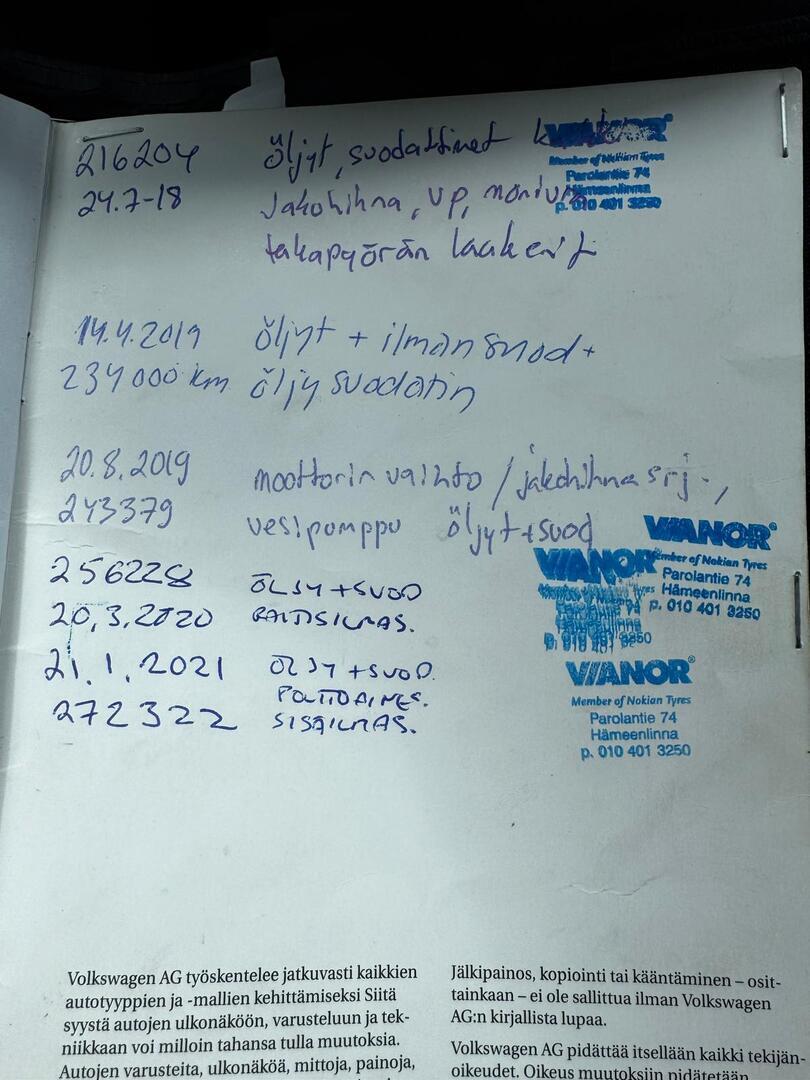 216204 öljyt, suodattimet
24.7-18 jakohihna, vp, moniura
takapyörän laakerit
VIANOR
Member of Nokian Tyres
Parolantie 74
Hämeenlinna
p. 010 401 3250
14.4.2019 öljyt + ilman suod +
234000 km öljysuodatin
20.8.2019 moottorin vaihto / jakohihna srj.,
243379 vesipumppu öljyt + suod
VIANOR
Member of Nokian Tyres
Parolantie 74
Hämeenlinna
p. 010 401 3250
256228 ÖLJY + SUOD
20,3.2020 RAITISILMAS.
VIANOR
21.1.2021 ÖLJY + SUOD.
POLTTOAINES.
272322 SISÄILMAS.
VIANOR
Member of Nokian Tyres
Parolantie 74
Hämeenlinna
p. 010 401 3250
Volkswagen AG työskentelee jatkuvasti kaikkien
autotyyppien ja -mallien kehittämiseksi Siitä
syystä autojen ulkonäköön, varusteluun ja tek-
niikkaan voi milloin tahansa tulla muutoksia.
Autojen varusteita, ulkonäköä, mittoja, painoja,
Jälkipainos, kopiointi tai kääntäminen – osit-
tainkaan – ei ole sallittua ilman Volkswagen
AG:n kirjallista lupaa.
Volkswagen AG pidättää itsellään kaikki tekijän-
oikeudet. Oikeus muutoksiin pidätetään